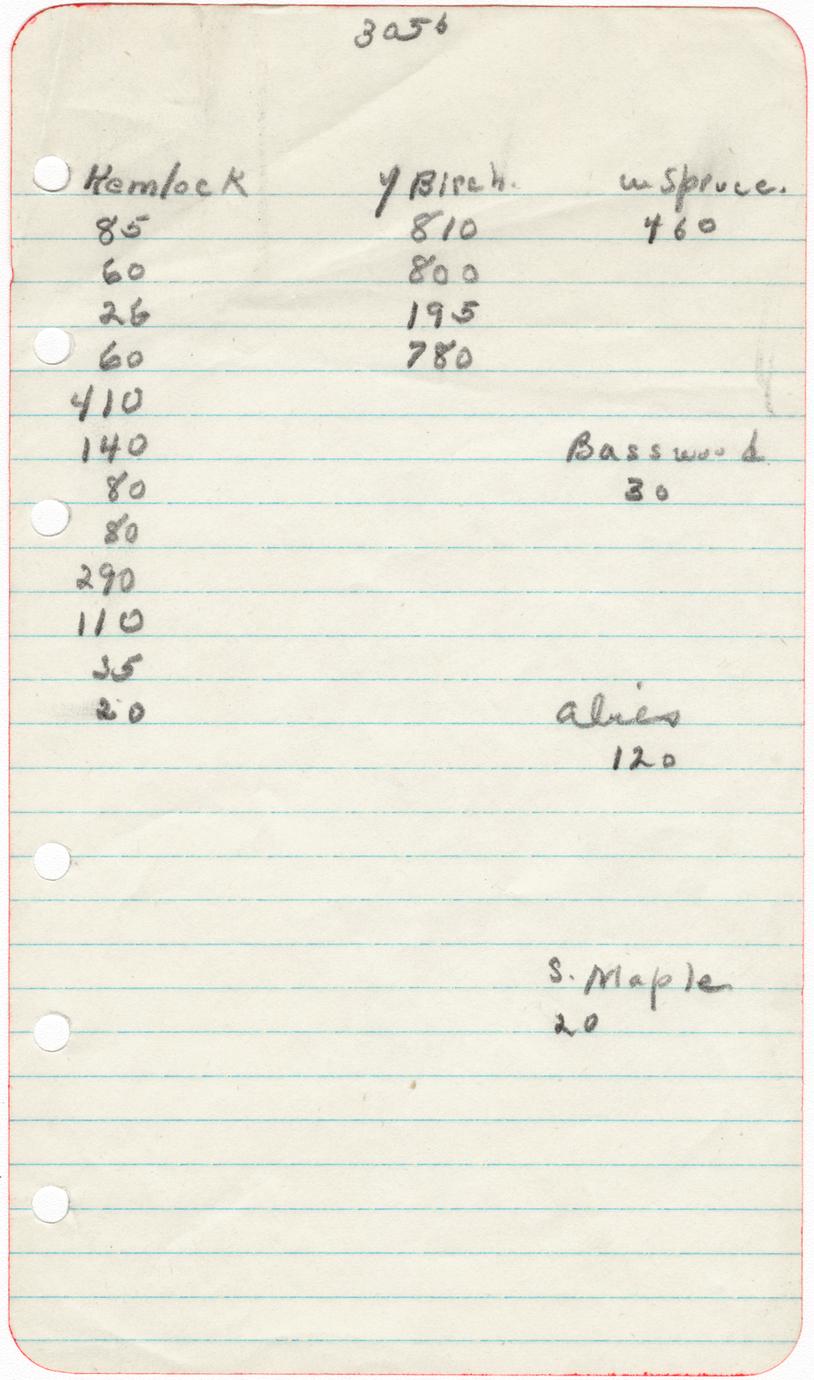 3056
Hemlock Y Birch. w. Spruce.
85 810 460
60 800
26 195
60 780
410
140 Basswood
80 30
80
290
110
35
20 abies
120
S. Maple
20